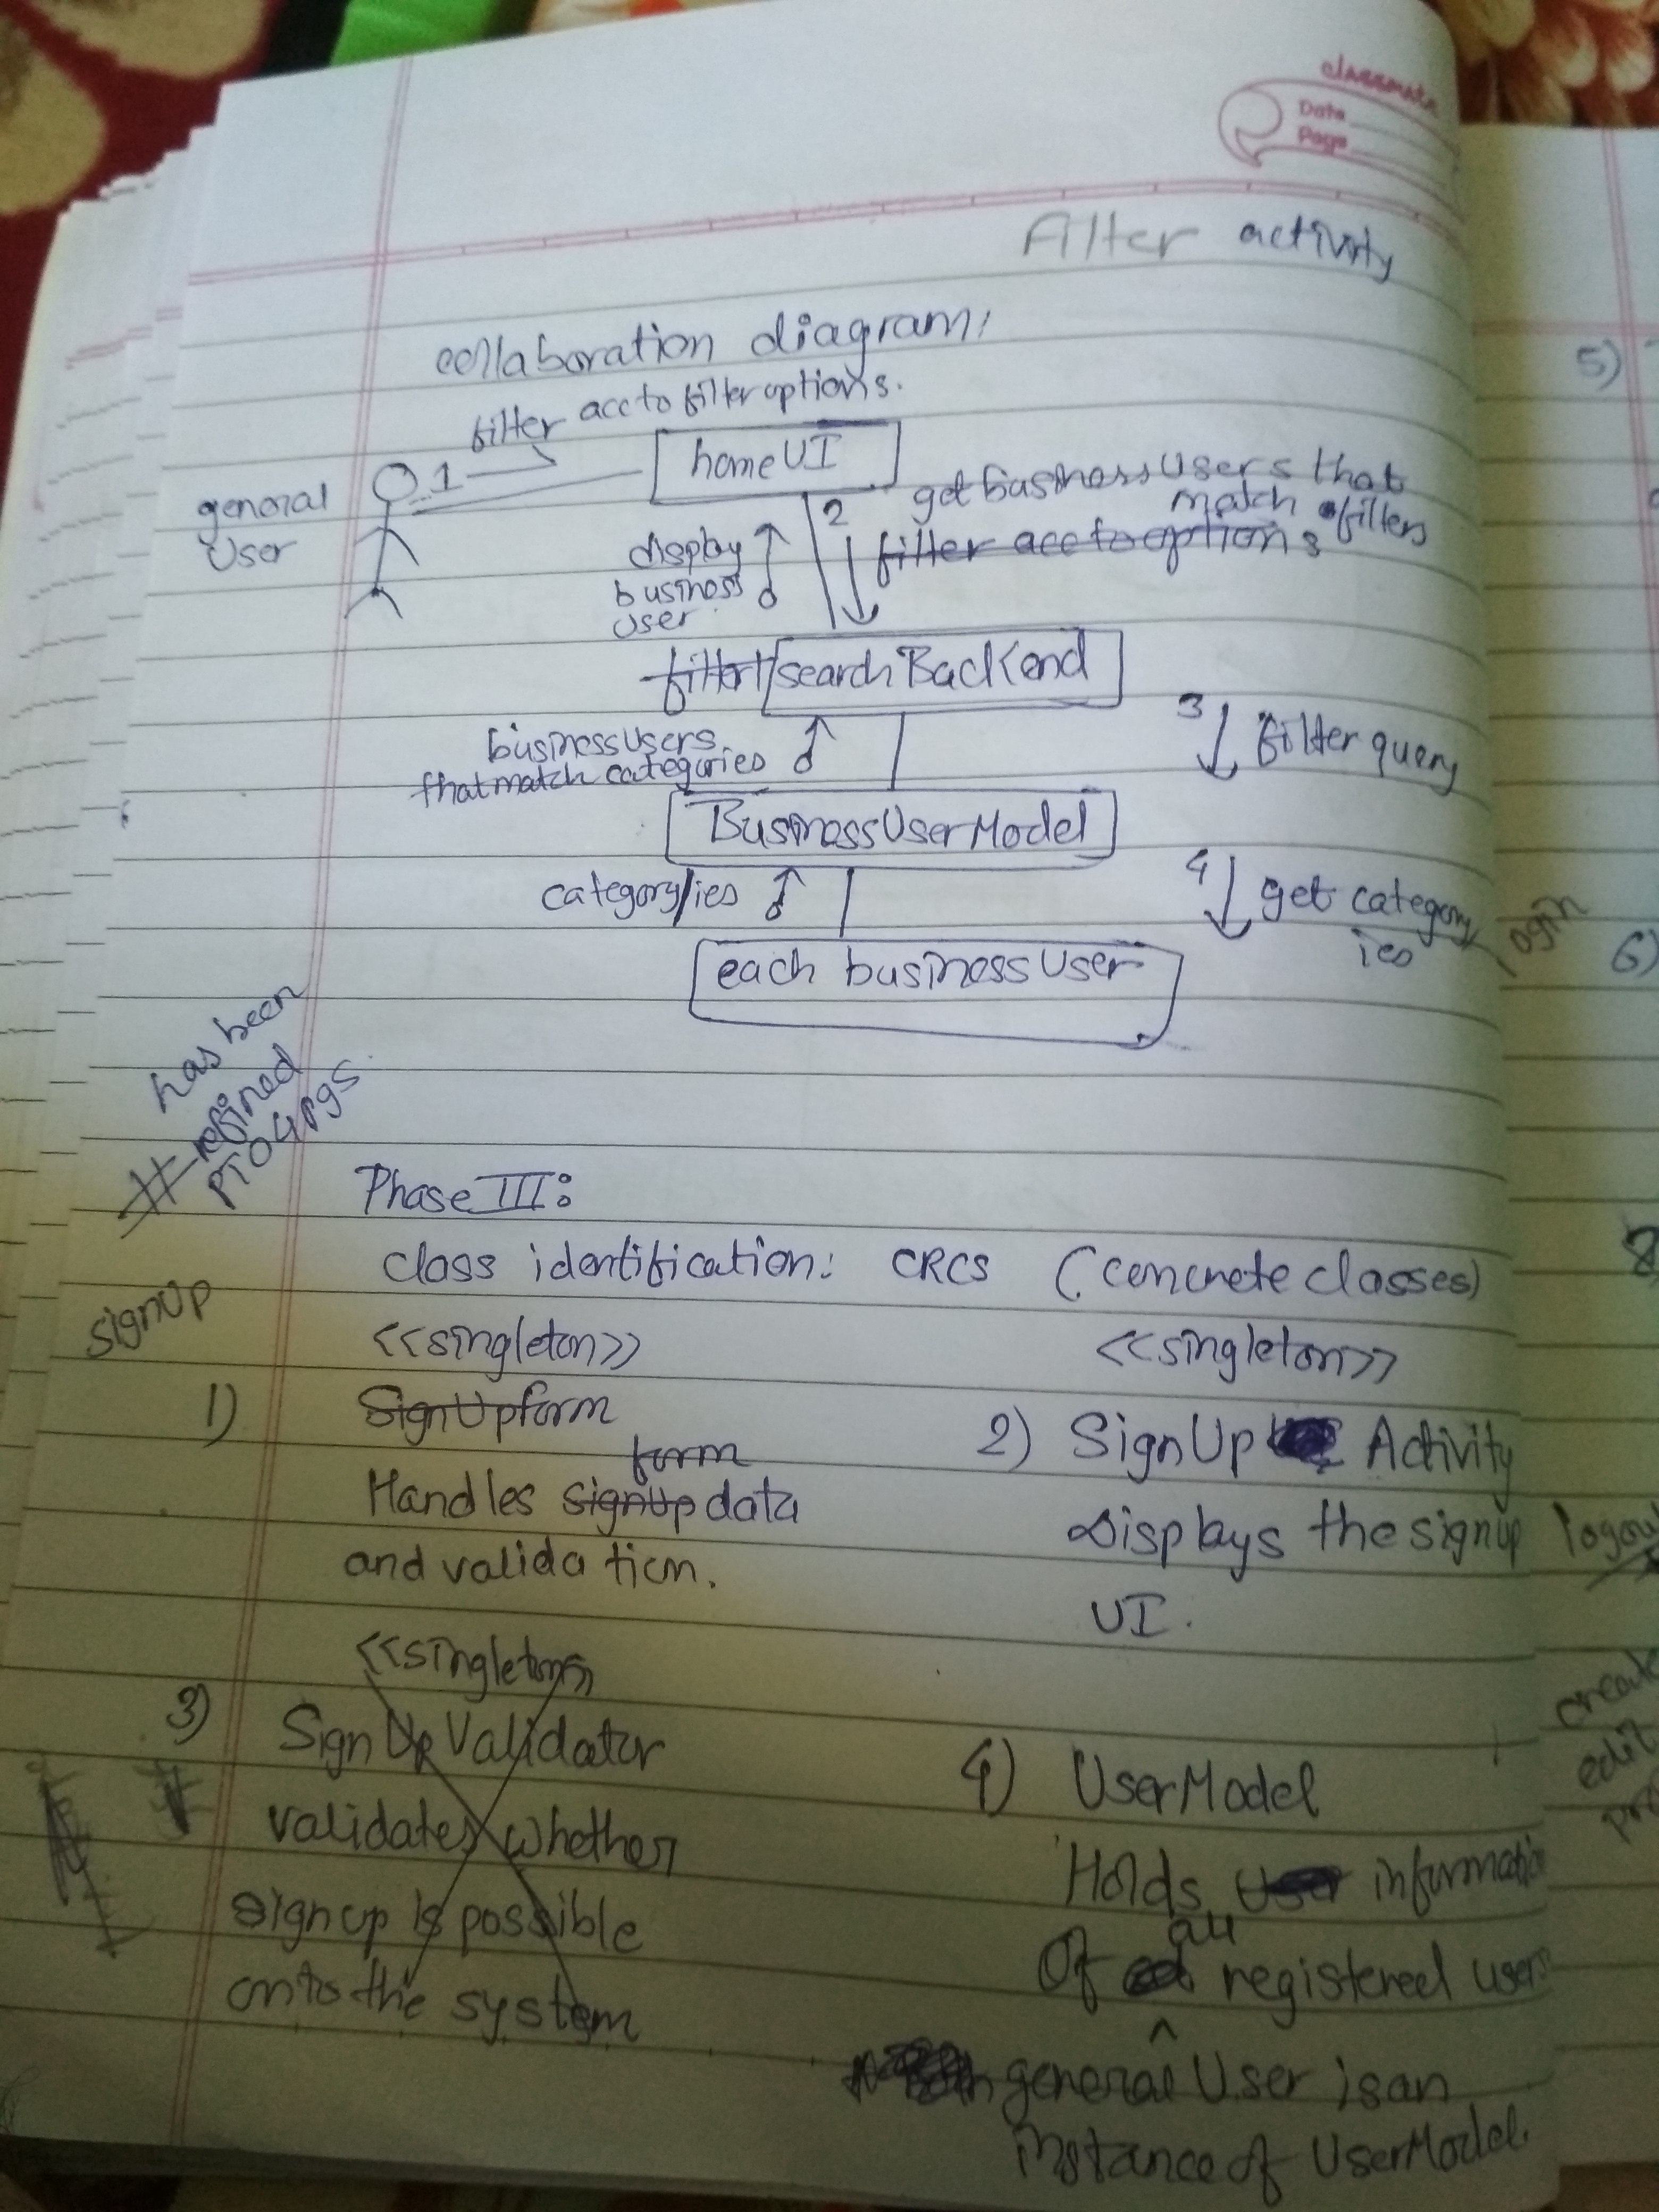 classmate
Date
Page
Filter activity
collaboration diagram:
filter acc to filter options.
1
homeUI
general
User
2
get businessUsers that
match filters
filter acc to options
display
business
user
filter/searchBackend
3
filter query
businessUsers
that match categories
BusinessUserModel
category/ies
4
get category
ies
each businessUser
login
has been
# refined
PTO 4 pgs.
Phase III:
class identification: CRCS (concrete classes)
signUp
<<singleton>>
<<singleton>>
1) SignUpform
form
Handles signUp data
and validation.
2) SignUp Activity
Displays the signup
UI.
<<singleton>>
3) SignUpValidator
validates whether
signup is possible
onto the system
4) UserModel
Holds User information
Of all registered users
general User is an
instance of UserModel.
5)
6)
8
create
edit